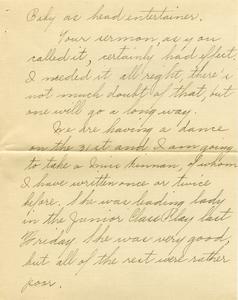 Baby as head entertainer.
Your sermon, as you
called it, certainly had effect.
I needed it all right, there's
not much doubt of that, but
one will go a long way.
We are having a dance
on the 31st and I am going
to take a Miss Kinnan, of whom
I have written once or twice
before. She was leading lady
in the Junior Class Play last
Friday. She was very good,
but all of the rest were rather
poor.